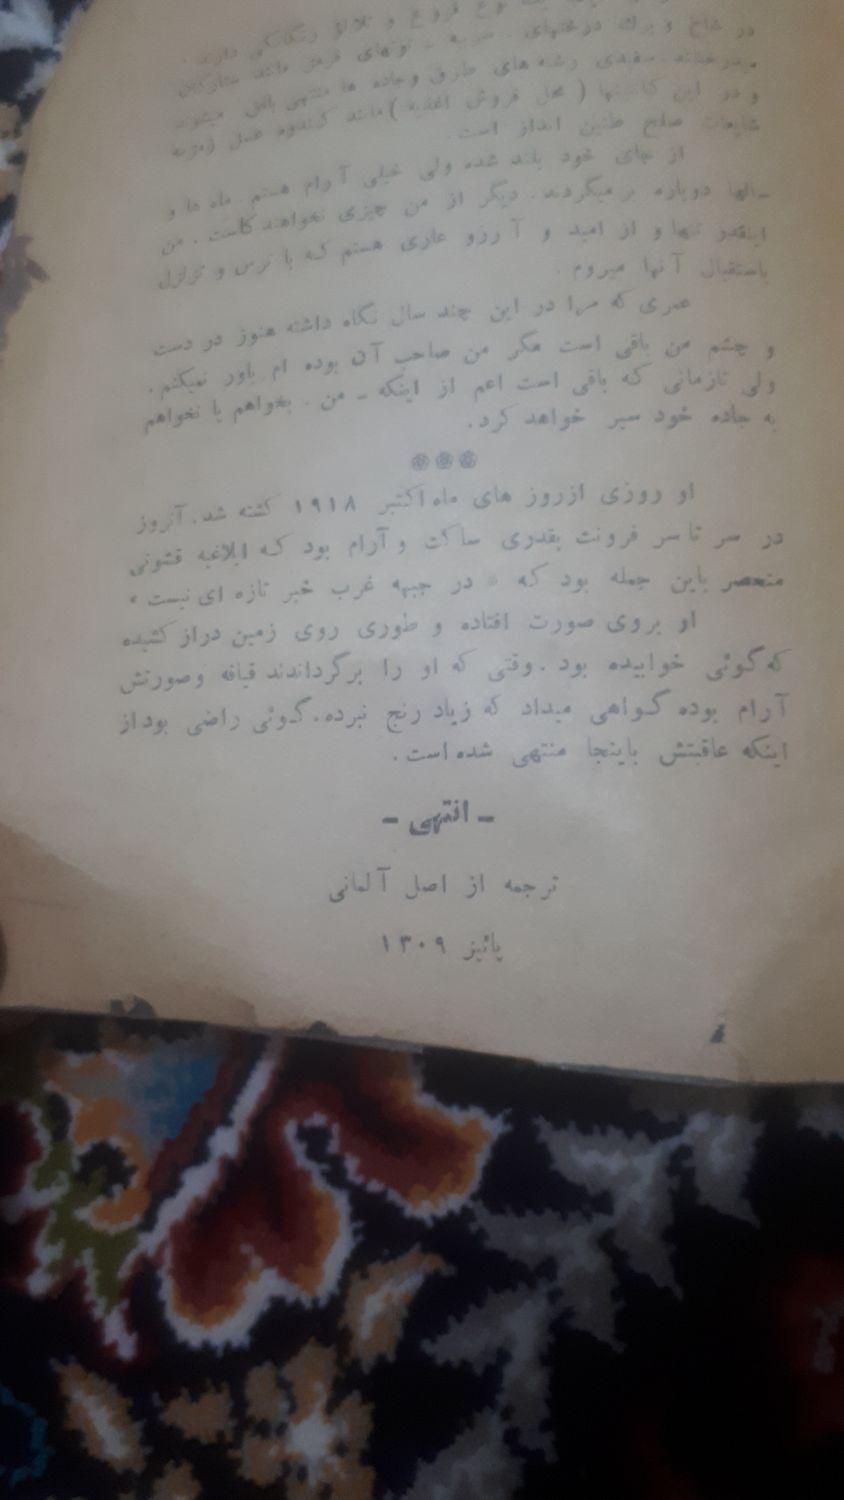 در شاخ و برك درختهای
میدرخشند. سفیدی رشته های طرق وجاده ها منتهی بافق میشوند
و در این کانتینها ( محل فروش اغذیه ) مانند کندوی عسل زمزمه
شایعات صلح طنین انداز است.
از جای خود بلند شده ولی خیلی آرام هستم. ماه ها و
سالها دوباره بر میگردند. دیگر از من چیزی نخواهند کاست. من
اینقدر تنها و از امید و آرزو عاری هستم که با ترس و تزلزل
باستقبال آنها میروم.
عمری که مرا در این چند سال نگاه داشته هنوز در دست
و چشم من باقی است مگر من صاحب آن بوده ام باور نمیکنم.
ولی تازمانی که باقی است اعم از اینکه ــ من. بخواهم یا نخواهم
به جاده خود سیر خواهد کرد.
❊❊❊
او روزی ازروز های ماه اکتبر ۱۹۱۸ کشته شد. آنروز
در سر تاسر فرونت بقدری ساکت و آرام بود که ابلاغیه قشونی
منحصر باین جمله بود که « در جبهه غرب خبر تازه ای نیست »
او بروی صورت افتاده و طوری روی زمین دراز کشیده
که گوئی خوابیده بود. وقتی که او را برگرداندند قیافه وصورتش
آرام بوده گواهی میداد که زیاد رنج نبرده. گوئی راضی بود از
اینکه عاقبتش باینجا منتهی شده است.
ــ انتهی ــ
ترجمه از اصل آلمانی
پائیز ۱۳۰۹